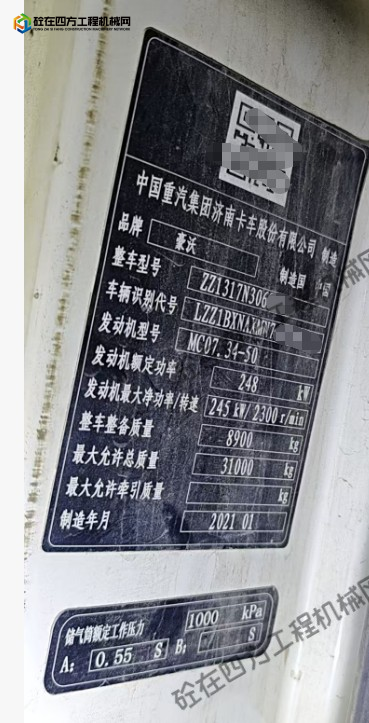 砼在四方工程机械网
TONG ZAI SI FANG CONSTRUCTION MACHINERY NETWORK
中国重汽集团济南卡车股份有限公司 制造
品牌 豪沃 制造国 中国
整车型号 ZZ1317N306
车辆识别代号 LZZ1BXNAXMN7
发动机型号 MC07.34-50
发动机额定功率 248 kW
发动机最大净功率/转速 245 kW/2300 r/min
整车整备质量 8900 kg
最大允许总质量 31000 kg
最大允许牵引质量 kg
制造年月 2021 01
储气筒额定工作压力 1000 kPa
A: 0.55 S B: / S
砼在四方工程机械网